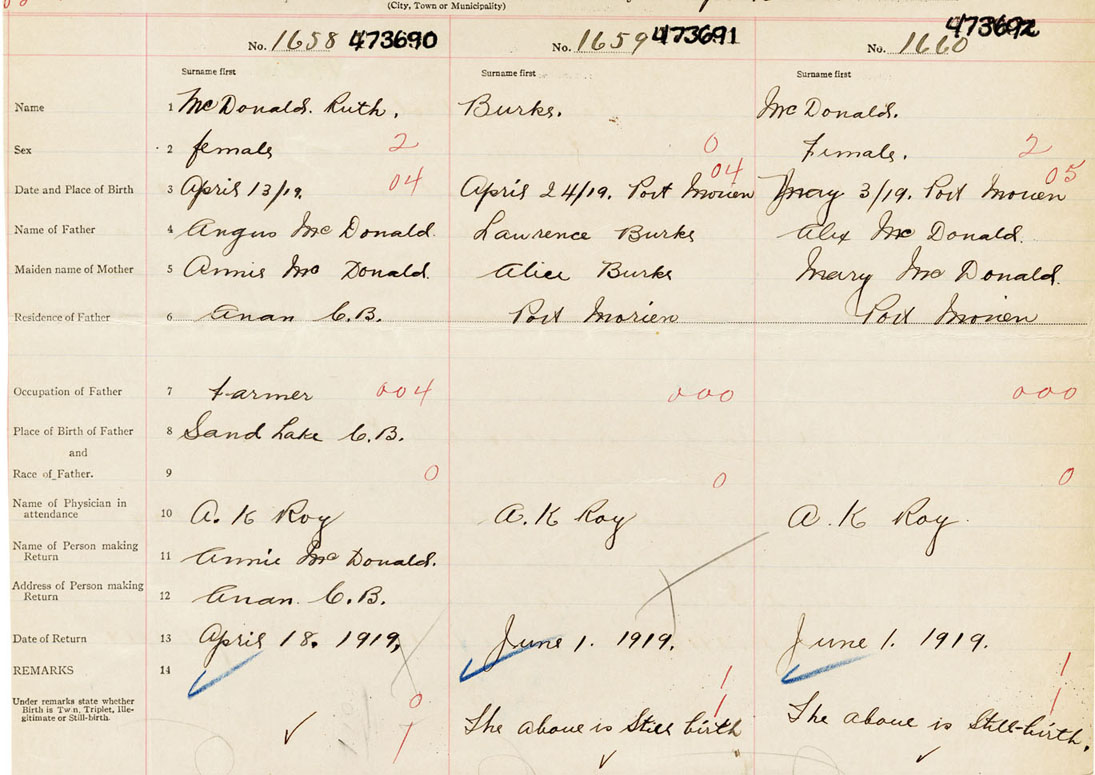 (City, Town or Municipality)
No. 1658 473690 No. 1659 473691 No. 1660 473692
Surname first Surname first Surname first
Name 1 McDonald. Ruth. Burke. McDonald.
Sex 2 female 2 0 Female. 2
04 05
Date and Place of Birth 3 April 13/19. 04 April 24/19. Port Morien May 3/19. Port Morien
Name of Father 4 Angus McDonald. Lawrence Burke Alex McDonald.
Maiden name of Mother 5 Annie McDonald. Alice Burke Mary McDonald.
Residence of Father 6 C.B. Port Morien Port Morien
Occupation of Father 7 Farmer 004 000 000
Place of Birth of Father 8 Sand Lake C.B.
and
Race of Father. 9 0 0 0
Name of Physician in
attendance 10 A. K Roy A. K Roy A. K Roy.
Name of Person making
Return 11 Annie McDonald.
Address of Person making
Return 12 C.B.
Date of Return 13 April 18. 1919. June 1. 1919. June 1. 1919.
REMARKS 14 1 1
Under remarks state whether
Birth is Twin, Triplet, Ille-
gitimate or Still-birth. 0 1 1
1 The above is Still birth The above is Still-birth.